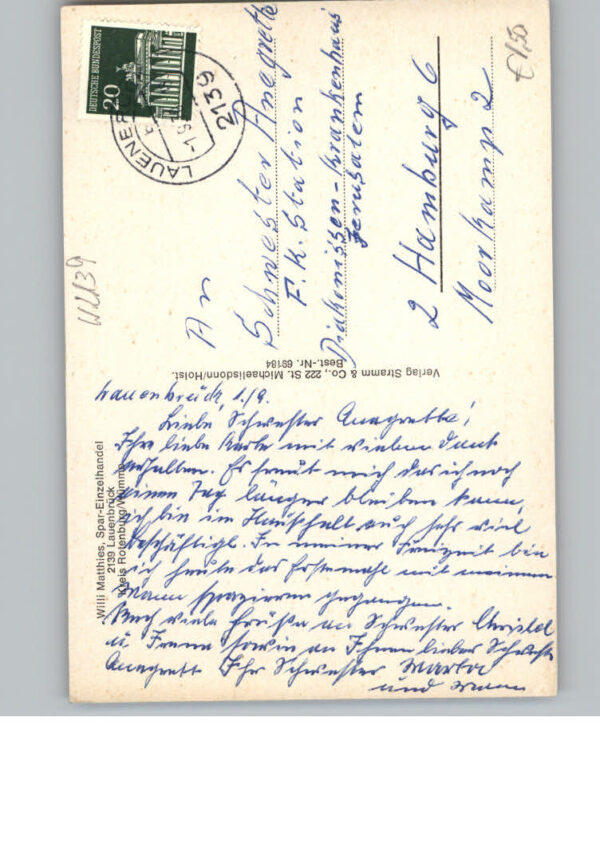 DEUTSCHE BUNDESPOST
20
LAUENBR
2139
€ 1,50
W2139
An
Schwester Anegrette
F. K. Station
Diakonissen-Krankenhaus
Jerusalem
2 Hamburg 6
Moorkamp 2
Verlag Stramm & Co., 222 St. Michaelisdonn/Holst.
Best.-Nr. 69184
Willi Matthies, Spar-Einzelhandel
2139 Lauenbrück
Kreis Rotenburg/Wümme
Lauenbrück, 1./9.
Liebe Schwester Anegrette!
Ihre liebe Karte mit vielen Dank
erhalten. Es freut mich das ich noch
einen Tag länger bleiben kann,
ich bin im Haushalt auch sehr viel
beschäftigt. In meiner Freizeit bin
ich heute das Erstemahl mit meinem
Mann spazieren gegangen.
Noch viele Grüße an Schwester Christel
u. Irene sowie an Ihnen lieber Schwester
Anegrett Ihr Schwester Marta
und Mann